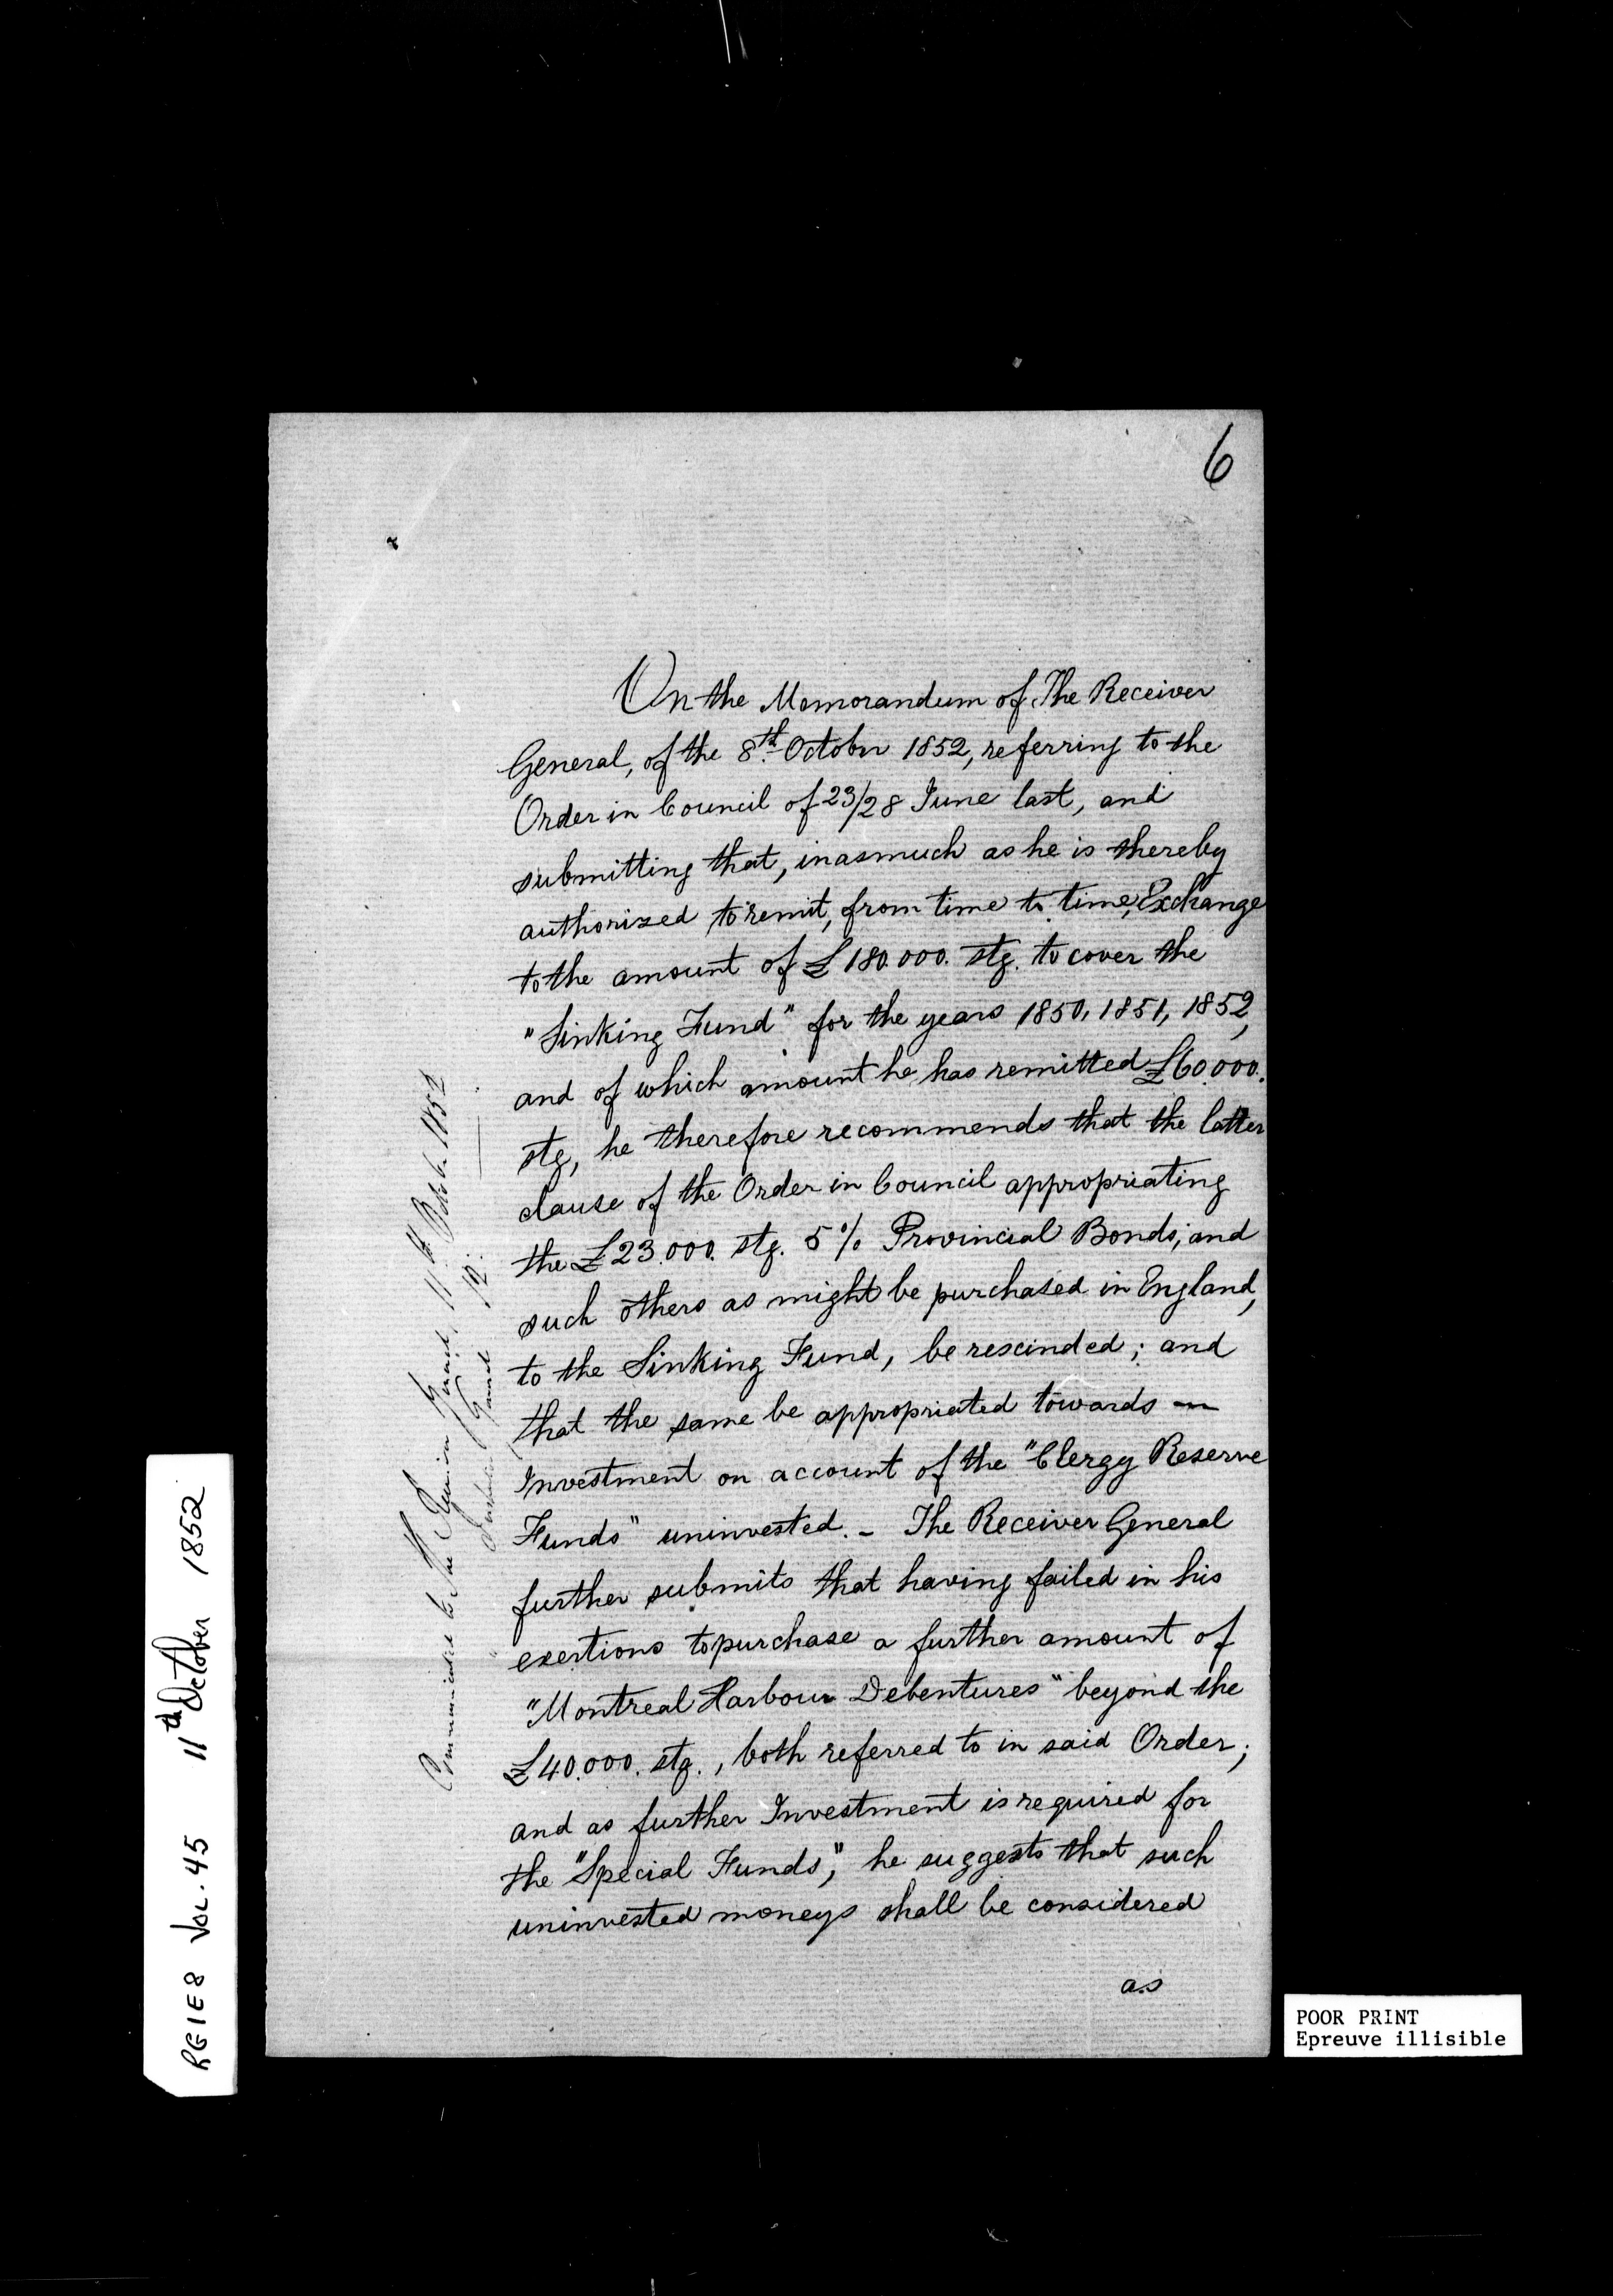 6
On the Memorandum of The Receiver
General, of the 8th. October 1852, referring to the
Order in Council of 23/28 June last, and
submitting that, inasmuch as he is thereby
authorized to remit, from time to time, Exchange
to the amount of £180.000. stg. to cover the
"Sinking Fund" for the years 1850, 1851, 1852,
and of which amount he has remitted £60.000.
stg, he therefore recommends that the latter
clause of the Order in Council appropriating
the £23.000. stg. 5% Provincial Bonds; and
such others as might be purchased in England,
to the Sinking Fund, be rescinded; and
that the same be appropriated towards —
Investment on account of the "Clergy Reserve
Funds" uninvested. - The Receiver General
further submits that having failed in his
exertions to purchase a further amount of
"Montreal Harbour Debentures" beyond the
£40.000. stg., both referred to in said Order;
and as further Investment is required for
the "Special Funds", he suggests that such
uninvested moneys shall be considered
as
Communicated to The Receiver General, 11th. Octob. 1852
Inspector General Do.
RG1E8 VOL. 45 11th October 1852
POOR PRINT
Epreuve illisible